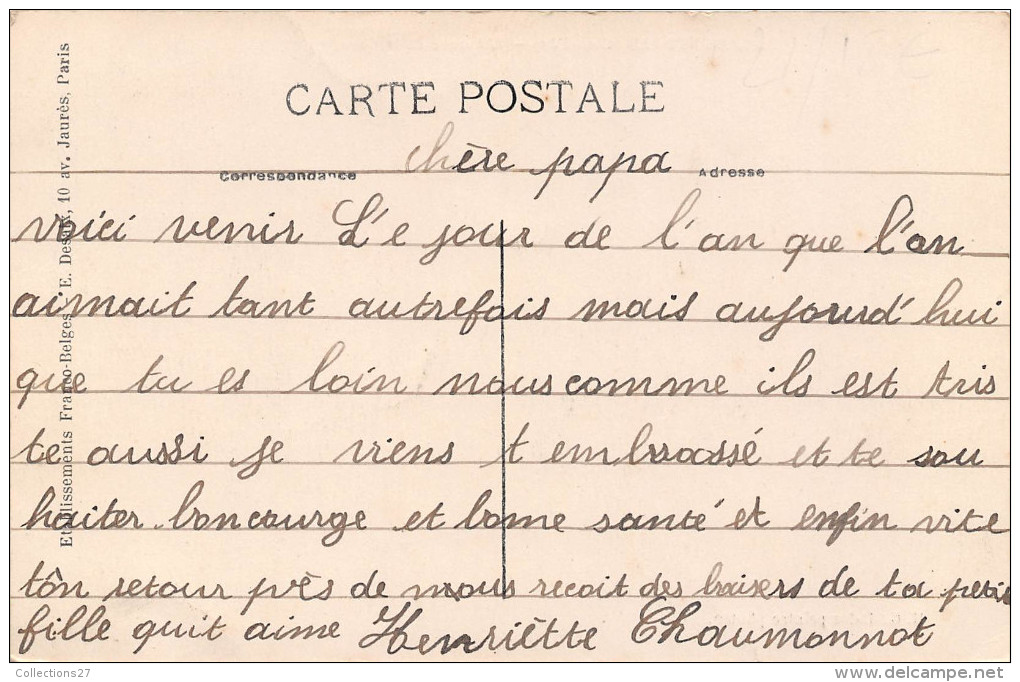 CARTE POSTALE
chère papa
Correspondance Adresse
voici venir L'e jour de l'an que l'on
aimait tant autrefois mais aujourd'hui
que tu es loin nous comme ils est tris
te aussi je viens t embrassé et te sou
haiter boncourge et bonne santé et enfin vite
tôn retour près de nous recoit des baisers de ta petis
fille quit aime Henriètte Chaumonnot
Etablissements Franco-Belges, E. Desaix, 10 av. Jaurès, Paris
Collections27
www.delcampe.net